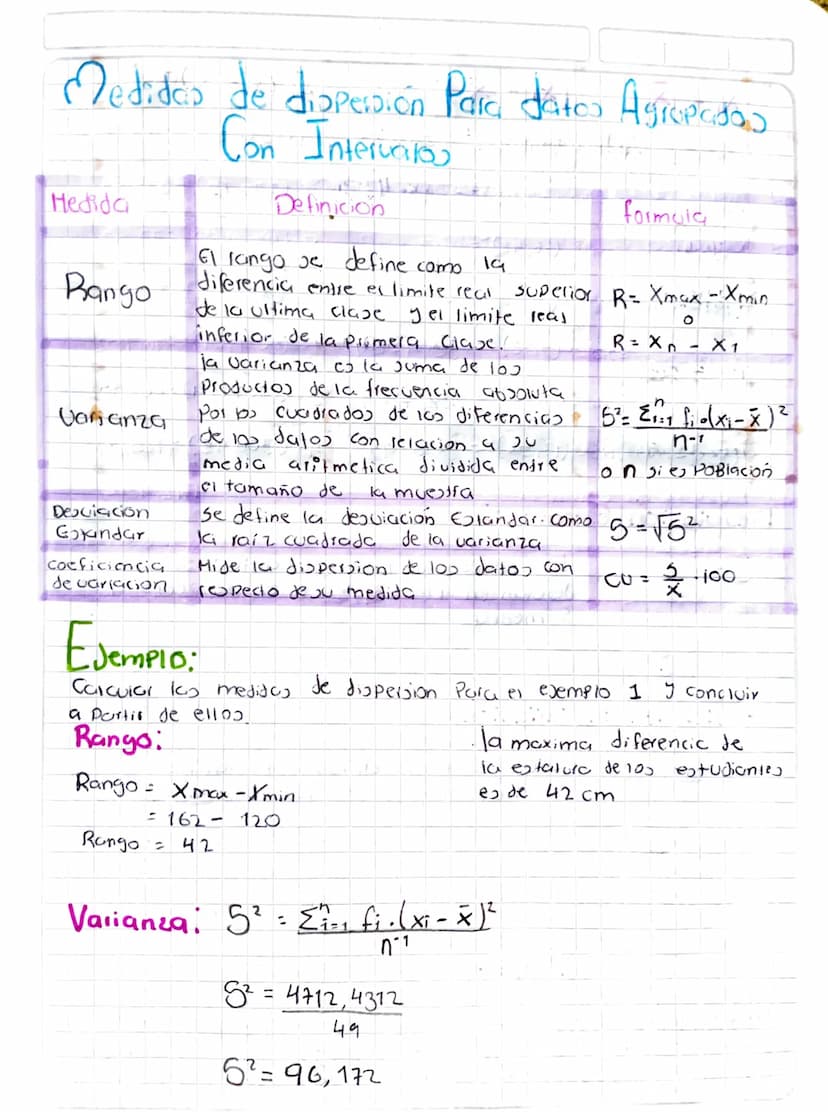 Medidas de dispersión Para datos Agrupados
Con Intervalos
Medida
Definición
formula
Rango
El rango se define como la
diferencia entre el limite real superior
de la ultima clase y el limite real
inferior de la primera clase.
R= Xmax - Xmin
o
R = Xn - X1
Varianza
la varianza es la suma de los
productos de la frecuencia absoluta
Por los cuadrados de las diferencias
de los datos con relacion a su
media aritmetica dividida entre
el tamaño de la muestra
S²= Σⁿi=1 fi•(xi - x̄)²
n-1
o n si es Población
Desviacion
Estandar
Se define la desviación Estandar. como
la raíz cuadrada de la varianza
S = √S²
coeficiencia
de variacion
Mide la dispersion de los datos con
respecto de su medida
CV = S/x · 100
Ejemplo:
Calcular las medidas de dispersion Para el ejemplo 1 y concluir
a partir de ellos.
Rango:
Rango = Xmax - Xmin
= 162 - 120
Rango = 42
la maxima diferencia de
la estatura de los estudiantes
es de 42 cm
Varianza: S² = Σⁿi=1 fi.(xi - x̄)²
n-1
S² = 4712,4312
49
S² = 96,172